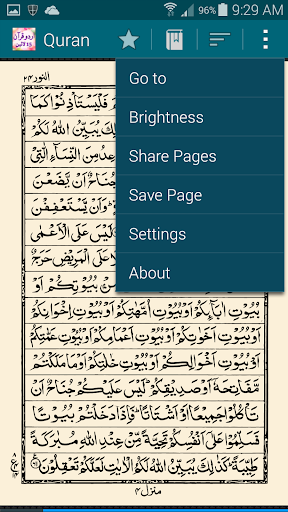 9:29 AM
96%
اردو قرآن
15 لائن
Quran
Go to
Brightness
Share Pages
Save Page
Settings
About
النور ٢٤
فَلْيَسْتَاْذِنُوْا كَمَا
يُبَيِّنُ اللّٰهُ لَكُمْ
مِنَ النِّسَآءِ الّٰتِيْ
جُنَاحٌ اَنْ يَّضَعْنَ
وَاَنْ يَّسْتَعْفِفْنَ
لَيْسَ عَلَى الْاَعْمٰى
عَلَى الْمَرِيْضِ حَرَجٌ
مِنْۢ بُيُوْتِكُمْ اَوْ
بُيُوْتِ اٰبَآئِكُمْ اَوْ بُيُوْتِ اُمَّهٰتِكُمْ اَوْ بُيُوْتِ اِخْوَانِكُمْ
اَوْ بُيُوْتِ اَخَوٰتِكُمْ اَوْ بُيُوْتِ اَعْمَامِكُمْ اَوْ بُيُوْتِ عَمّٰتِكُمْ
اَوْ بُيُوْتِ اَخْوَالِكُمْ اَوْ بُيُوْتِ خٰلٰتِكُمْ اَوْ مَا مَلَكْتُمْ
مَّفَاتِحَهٗٓ اَوْ صَدِيْقِكُمْ ؕ لَيْسَ عَلَيْكُمْ جُنَاحٌ اَنْ
تَاْكُلُوْا جَمِيْعًا اَوْ اَشْتَاتًا ؕ فَاِذَا دَخَلْتُمْ بُيُوْتًا
فَسَلِّمُوْا عَلٰٓى اَنْفُسِكُمْ تَحِيَّةً مِّنْ عِنْدِ اللّٰهِ مُبٰرَكَةً
طَيِّبَةً ؕ كَذٰلِكَ يُبَيِّنُ اللّٰهُ لَكُمُ الْاٰيٰتِ لَعَلَّكُمْ تَعْقِلُوْنَ ۝
منزل ٤